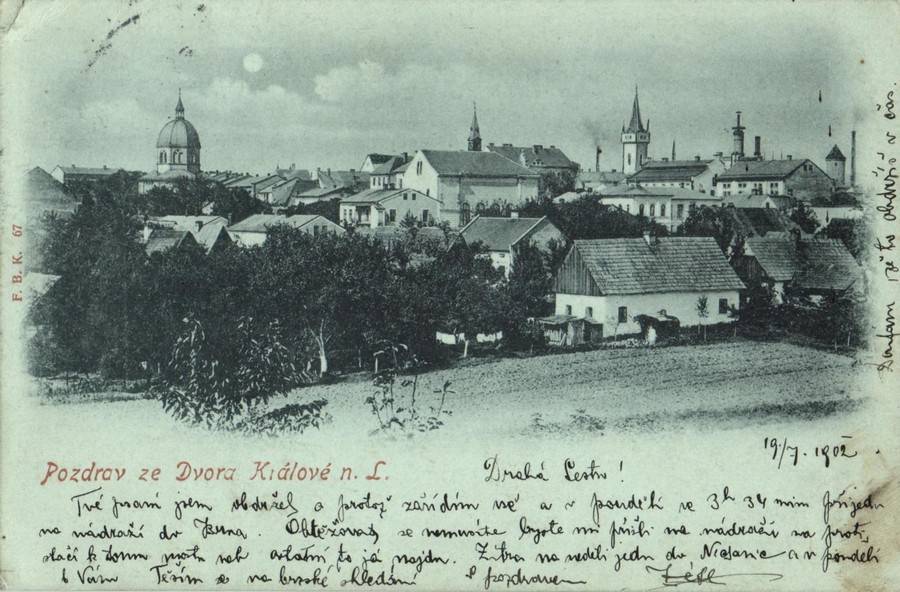 F. B. K. 67
Pozdrav ze Dvora Králové n. L.
19/7. 1902
Drahá Sestro!
Tvé psaní jsem obdržel a protož zařídím vše a v pondělí ve 3h 34 min přijedu
na nádraží do Brna. Obtěžovat se nemusíte byste mi přišli na nádraží
stačí k tomu ostatní to já najdu. Zítra na neděli jedu do a v pondělí
k Vám Těším se na brzké shledání S pozdravem
Doufám že to obdržíš v čas.